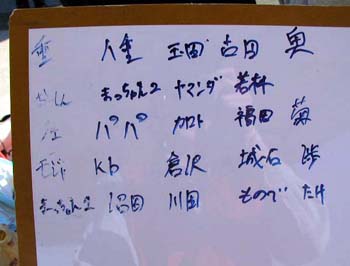 八重 玉田 吉田 奥
まっちゃん2 ヤマンダ 若林
パパ カロト 福田 菊
モジャ Kb 倉沢 城石 歩
まっちゃん2 沼田 川田 ものべ たけ